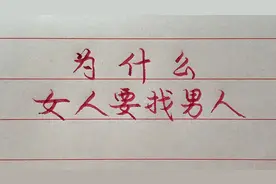 为什么
女人要找男人